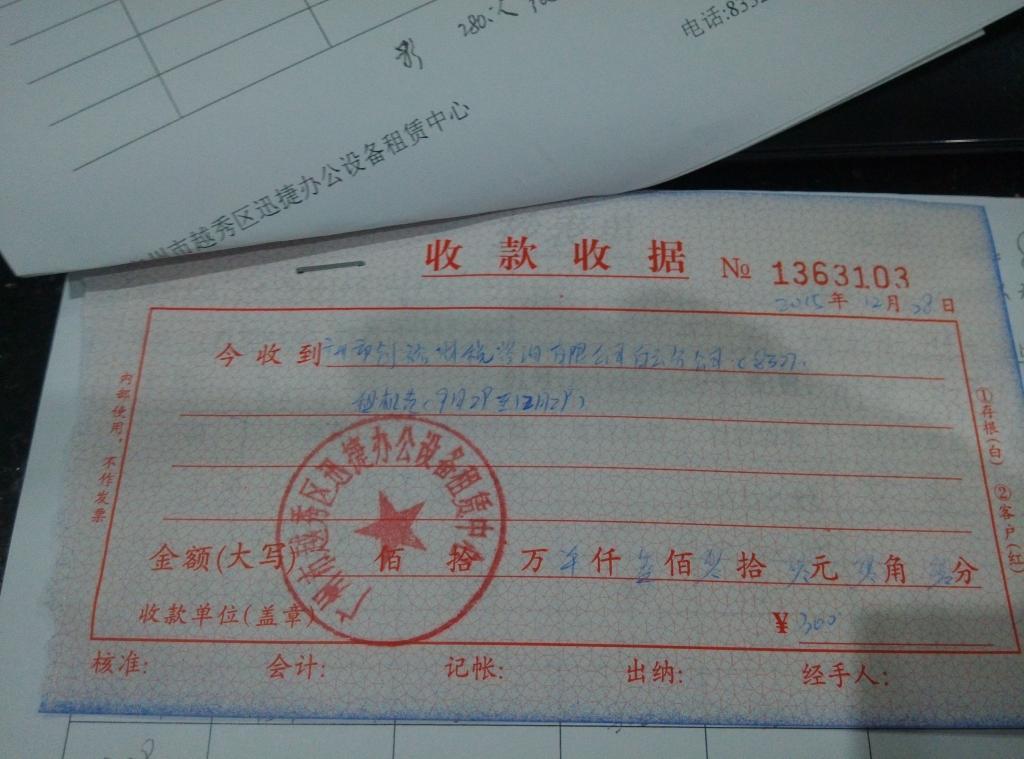 280
电话:833
广州市越秀区迅捷办公设备租赁中心
收款收据 № 1363103
2015年12月28日
今收到
有限公司白云分公司
租机费(9月2日至12月2日)
内部使用,不作发票
①存根(白)
②客户(红)
广州市越秀区迅捷办公设备租赁中心
金额(大写) 佰 拾 万 仟 佰 拾 元 角 分
收款单位(盖章) ¥300
核准: 会计: 记帐: 出纳: 经手人: